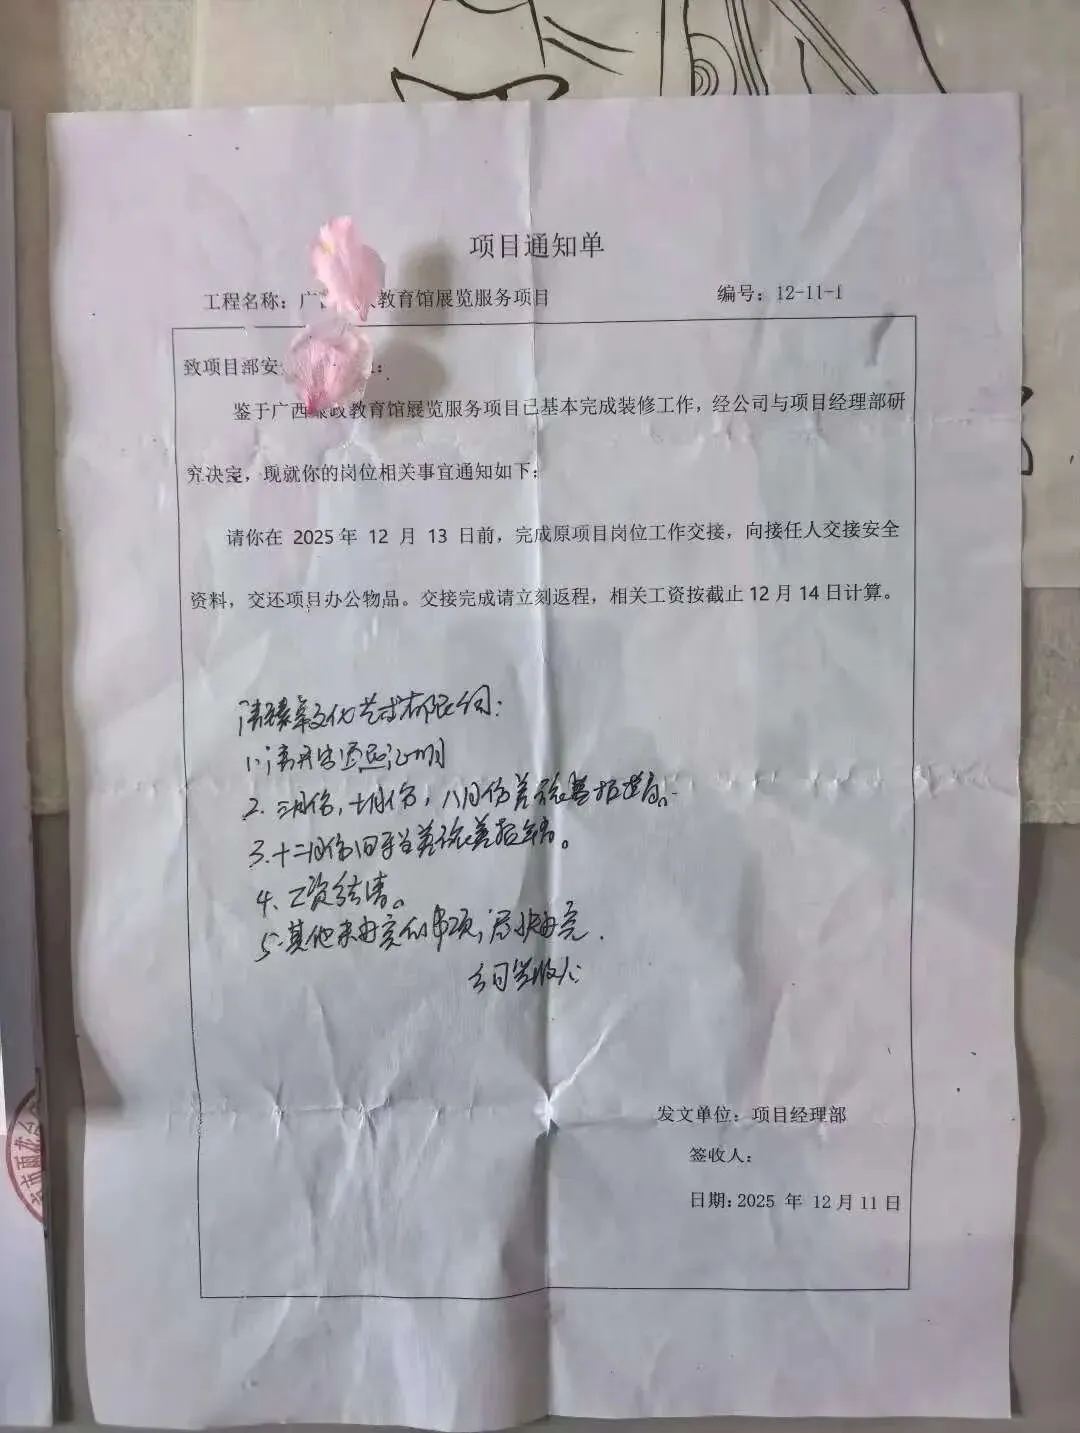 项目通知单
工程名称：广 教育馆展览服务项目
编号：12-11-1
致项目部安 ：
鉴于广西 政教育馆展览服务项目已基本完成装修工作，经公司与项目经理部研
究决定，现就你的岗位相关事宜通知如下：
请你在 2025年 12 月 13 日前，完成原项目岗位工作交接，向接任人交接安全
资料，交还项目办公物品。交接完成请立刻返程，相关工资按截止12月14日计算。
请 文化艺术有限公司：
1. 证明
2. 月份，十月份，八月份差旅费报
3.十二月份 差旅费报销。
4、工资结清。
5.其他未 事项，
发文单位：项目经理部
签收人：
日期：2025 年 12月11日